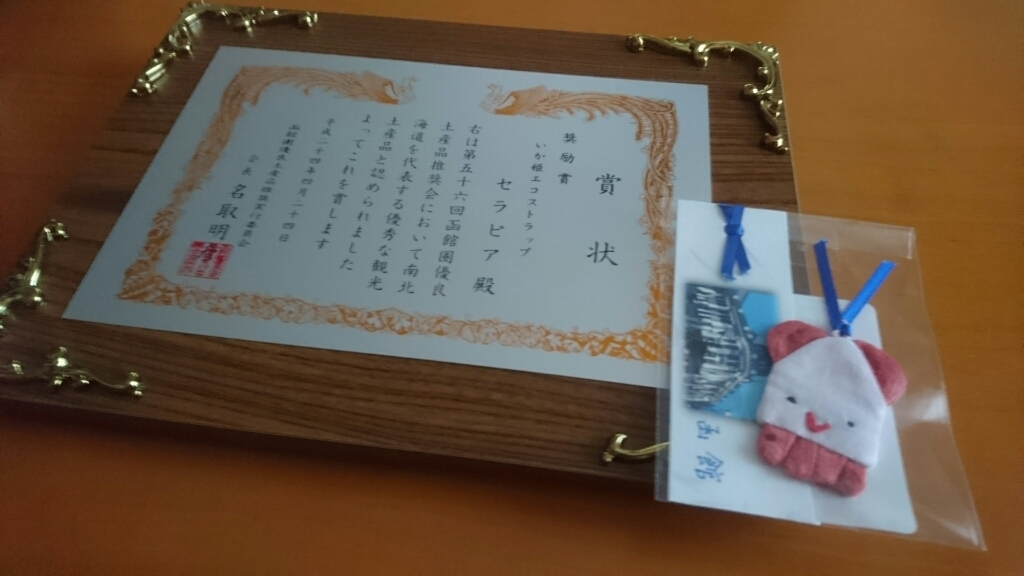 賞状
奨励賞
いか姫エコストラップ
セラピア殿
右は第五十六回函館圏優良
土産品推奨会において南北
海道を代表する優秀な観光
土産品と認められました
よってこれを賞します
平成二十四年四月二十四日
函館圏優良土産品推奨実行委員会
会長 名取明
函館